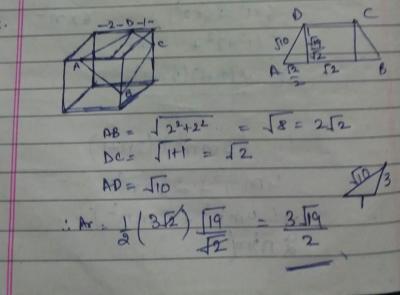 -2-D-1-
C
A
B
D C
√10
√19/√2
A √2/2 √2 B
AB = √(2²+2²) = √8 = 2√2
DC = √(1+1) = √2
AD = √10
√10 3
1
∴ Ar = 1/2 (3√2) √19/√2 = 3√19/2